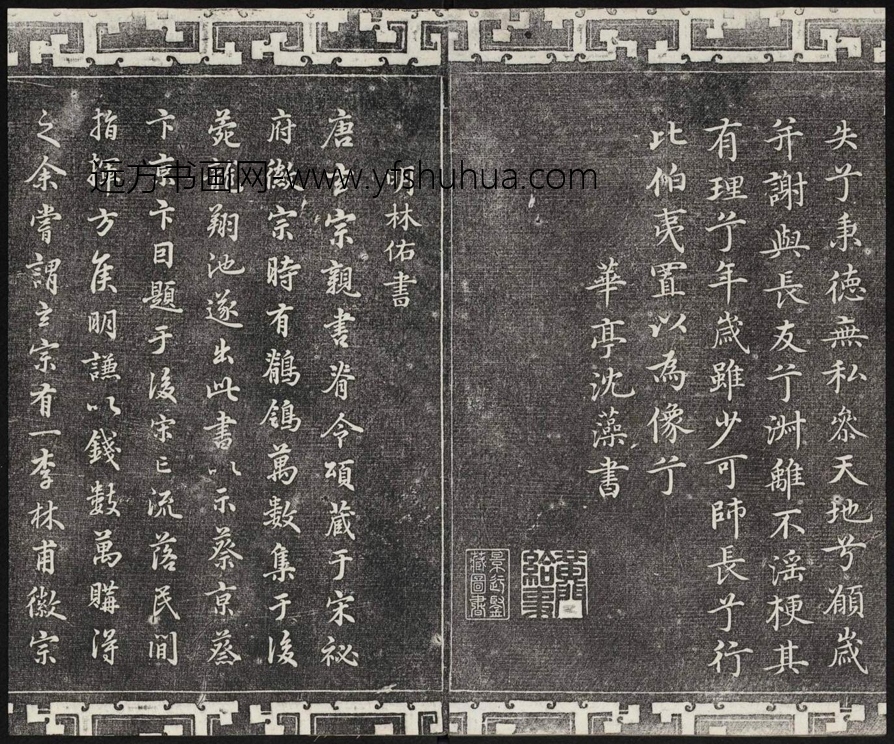 失兮秉德無私參天地兮願歲
并謝與長友兮淑離不淫梗其
有理兮年歲雖少可師長兮行
比伯夷置以為像兮
華亭沈藻書
黃門給事
明林佑書
唐玄宗親書脊令頌蔵于宋祕
府徽宗時有鶺鴒萬數集于後
苑龍翔池遂出此書以示蔡京蔡
卞京卞囙題于後宋亡流落民間
指揮方侯明謙以錢數萬購得
之余嘗謂玄宗有一李林甫徽宗
远方书画网 www.yfshuhua.com